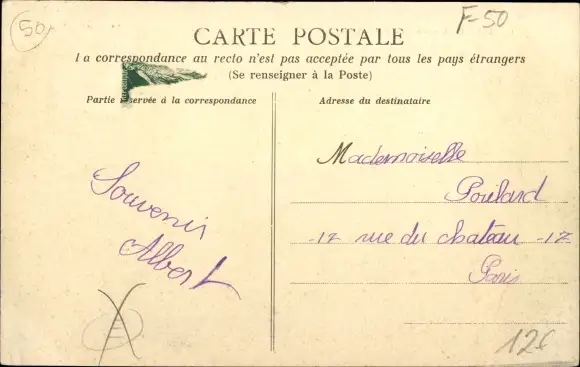 50
F-50
CARTE POSTALE
La correspondance au recto n'est pas acceptée par tous les pays étrangers
(Se renseigner à la Poste)
Partie réservée à la correspondance
Adresse du destinataire
Souvenir
Albert
Mademoiselle
Poulard
12 rue du chateau - 12
Paris
12€